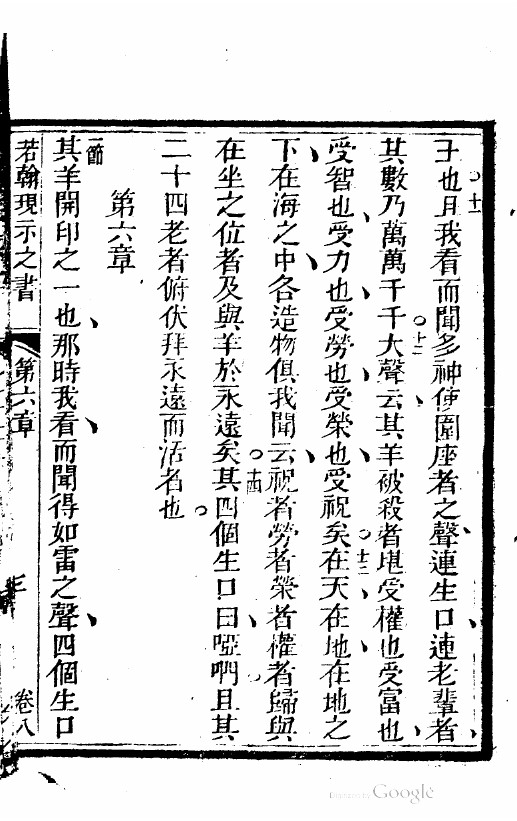 王也十一且我看而聞多神使圍座者之聲連生口連老輩者
其數乃萬萬千千十二大聲云其羊被殺者堪受權也受富也
受智也受力也受勞也受榮也受祝矣十三在天在地在地之
下在海之中各造物俱我聞云祝者勞者榮者權者歸與
在坐之位者及與羊於永遠矣十四其四個生口曰啞吶且其
二十四老者俯伏拜永遠而活者也
第六章
一節其羊開印之一也那時我看而聞得如雷之聲四個生口
若翰現示之書 第六章 卷八
Digitized by Google